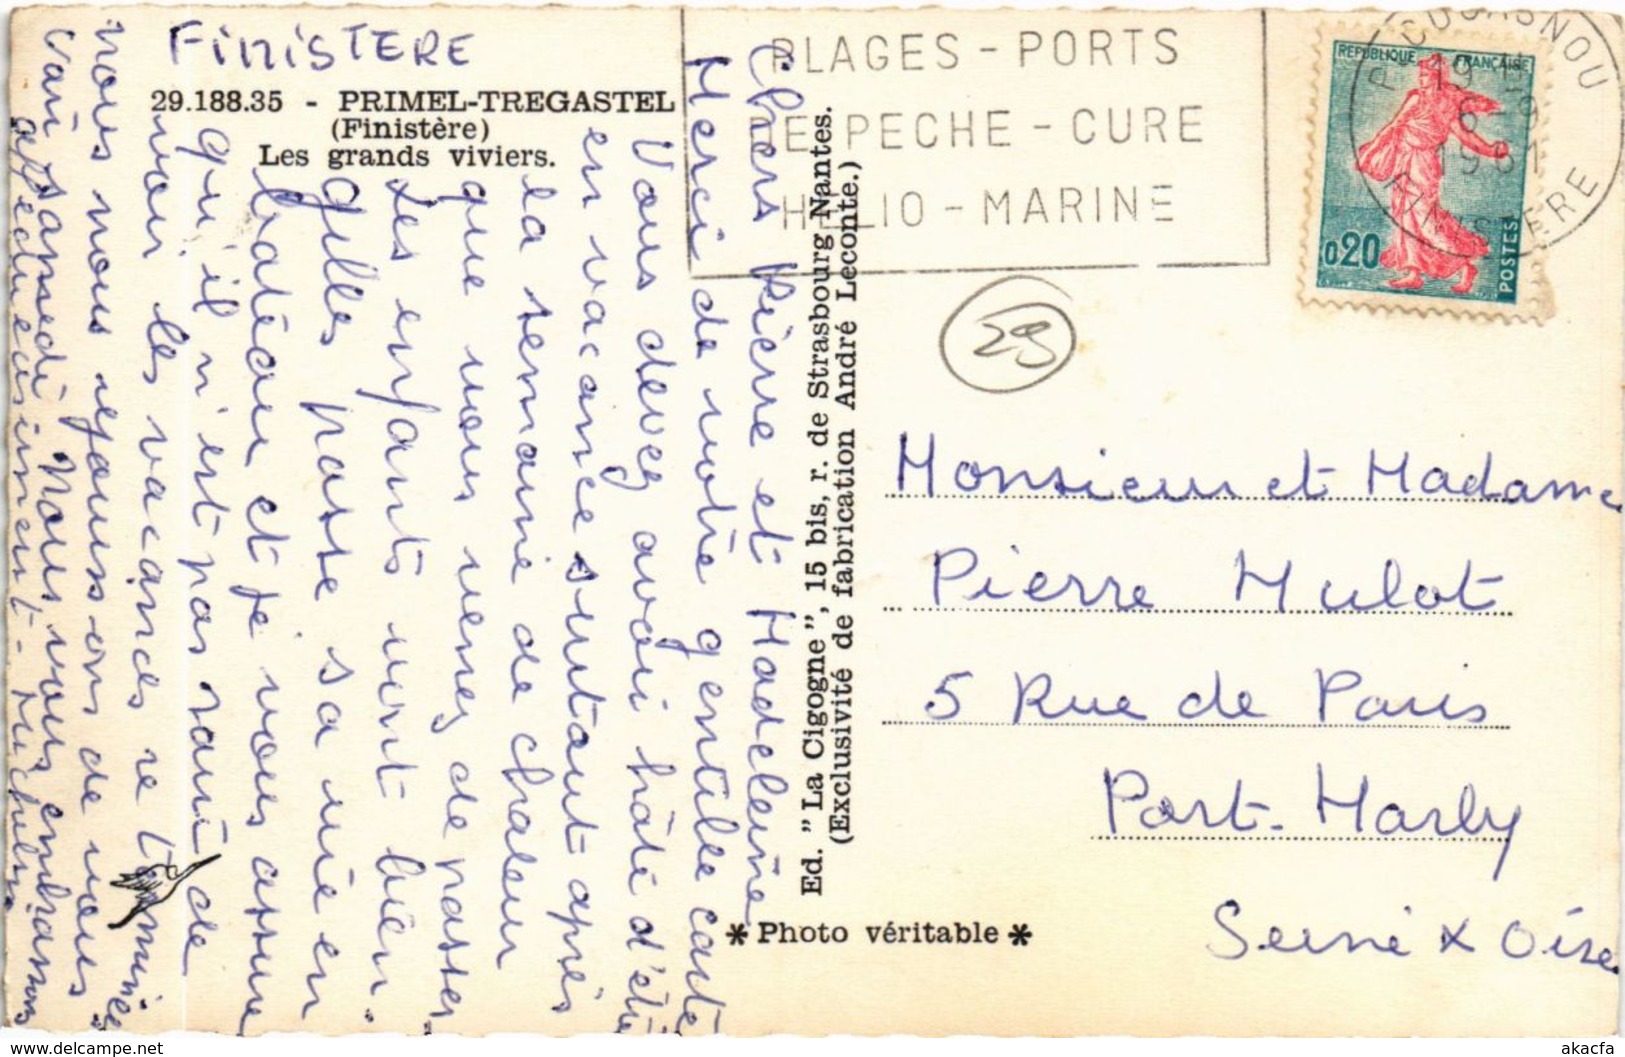 FINISTERE
29.188.35 - PRIMEL-TREGASTEL
(Finistère)
Les grands viviers.
PLAGES - PORTS
DE PECHE - CURE
HELIO - MARINE
PLOUGASNOU
19 H
6 - 9
1961
FINISTERE
REPUBLIQUE FRANÇAISE
0,20
POSTES
29
Chers Pierre et Madeleine
Merci de votre gentille carte
Vous devez avoir hâte d'être
en vacances surtout après
la semaine de chaleur
que vous venez de passer
Les enfants vont bien.
Gilles passe sa vie en
bateau et je vous assure
qu'il n'est pas ravi de
voir les vacances se terminer
nous nous réjouissons de vous
voir samedi Nous vous embrassons
affectueusement -
Ed. "La Cigogne", 15 bis, r. de Strasbourg Nantes.
(Exclusivité de fabrication André Leconte.)
* Photo véritable *
Monsieur et Madame
Pierre Hulot
5 Rue de Paris
Port-Marly
Seine & Oise
akacfa
https://www.delcampe.net